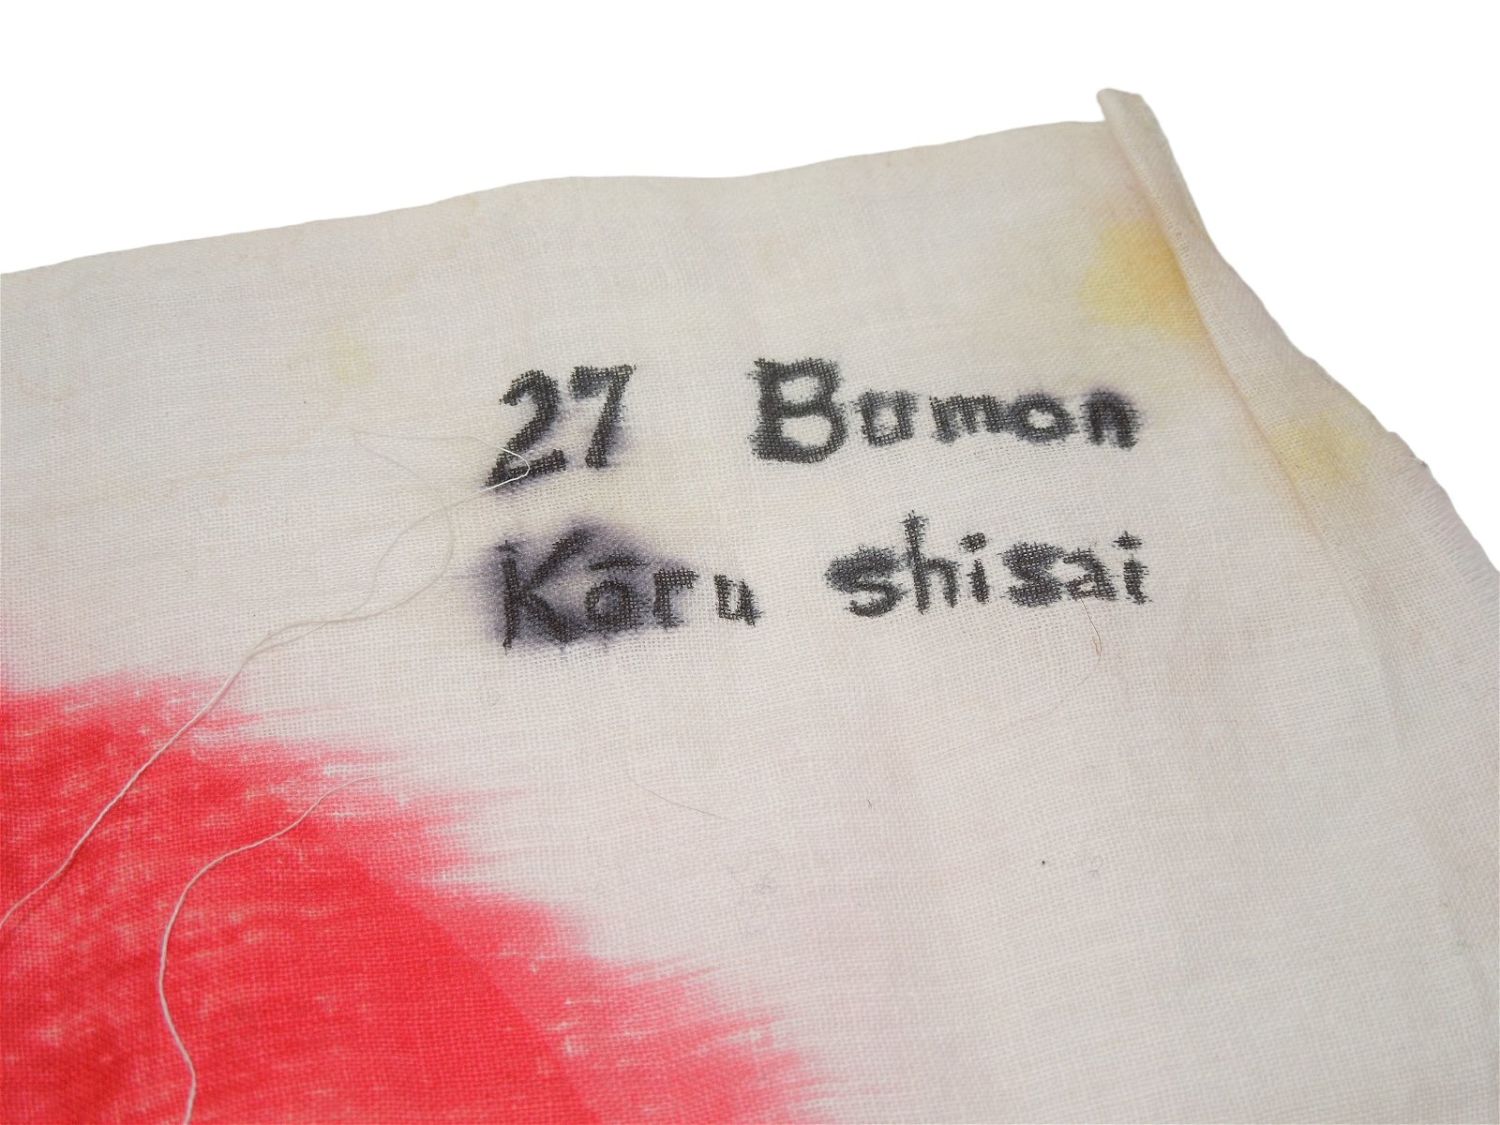 27 Bumon
Kōru shisai